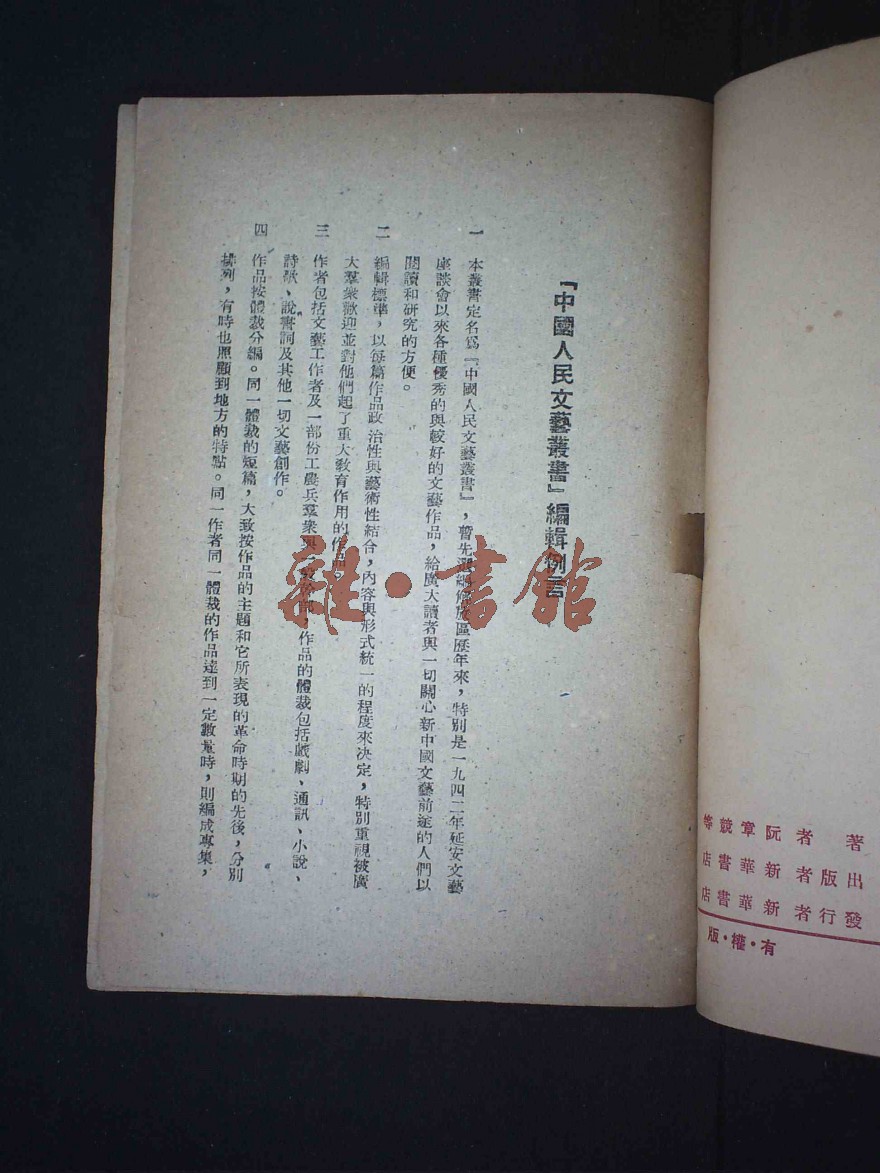 『中國人民文藝叢書』編輯例言
一　本叢書定名爲『中國人民文藝叢書』，暫先選編解放區歷年來，特別是一九四二年延安文藝
座談會以來各種優秀的與較好的文藝作品，給廣大讀者與一切關心新中國文藝前途的人們以
閱讀和研究的方便。
二　編輯標準，以每篇作品政治性與藝術性結合，內容與形式統一的程度來決定，特別重視被廣
大羣衆歡迎並對他們起了重大敎育作用的作品。
三　作者包括文藝工作者及一部份工農兵羣衆與一般幹部，作品的體裁包括戲劇、通訊、小說、
詩歌、說書詞及其他一切文藝創作。
四　作品按體裁分編。同一體裁的短篇，大致按作品的主題和它所表現的革命時期的先後，分別
排列，有時也照顧到地方的特點。同一作者同一體裁的作品達到一定數量時，則編成專集，
著者阮章競等
出版者新華書店
發行者新華書店
有・權・版
雜・書館